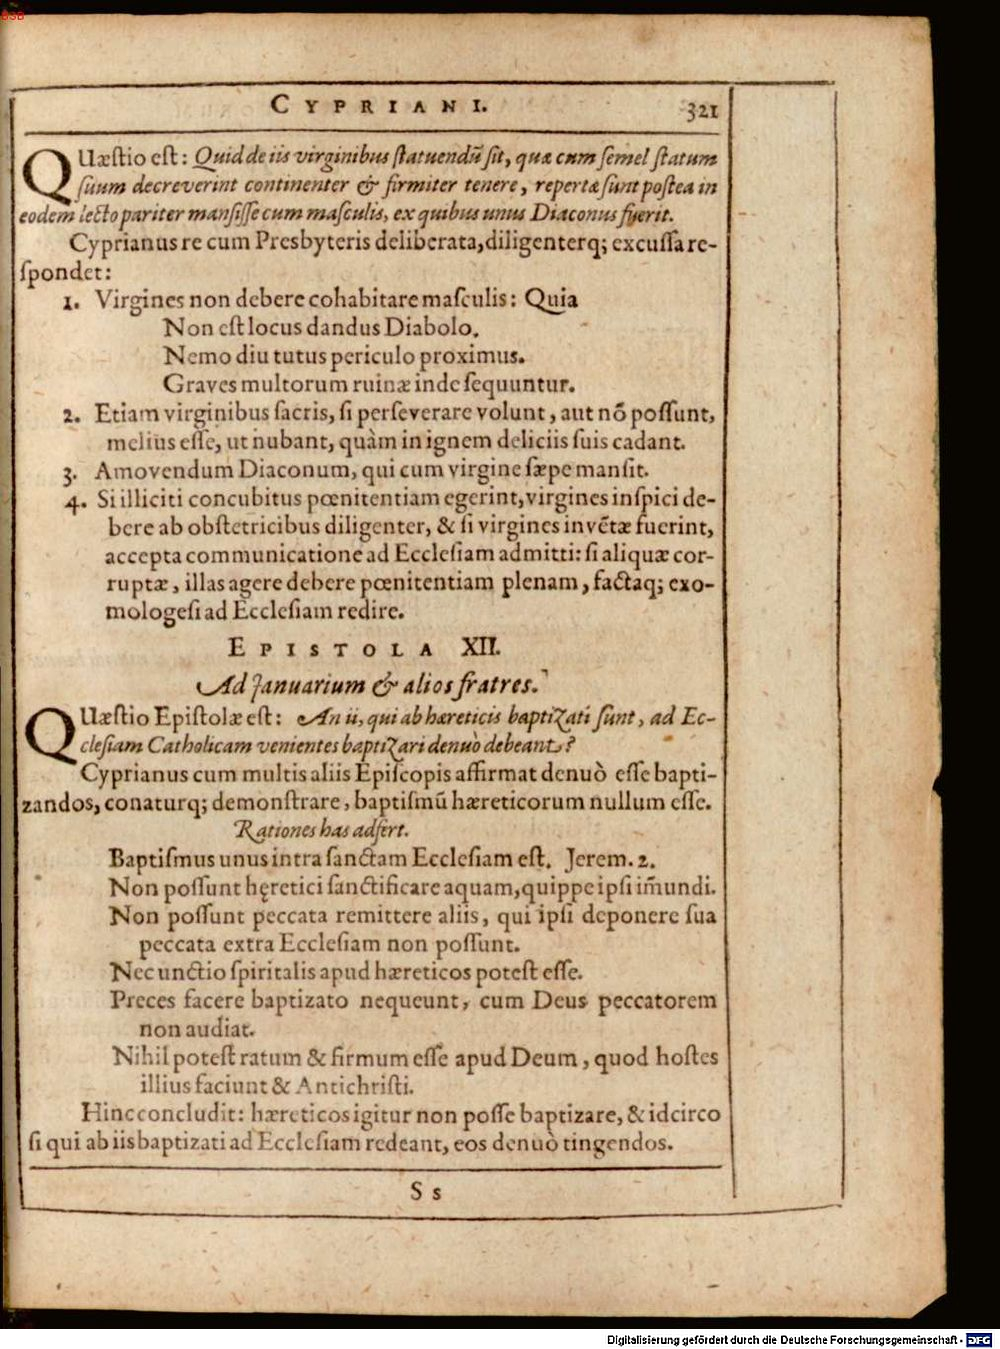 BSB
CYPRIANI. 321
QUæſtio eſt: Quid de iis virginibus ſtatuendũ ſit, quæ cum ſemel ſtatum
ſuum decreverint continenter & firmiter tenere, repertæ ſunt poſtea in
eodem lecto pariter manſiſſe cum maſculis, ex quibus unus Diaconus fuerit.
Cyprianus re cum Presbyteris deliberata, diligenterq; excuſſa re-
ſpondet:
1. Virgines non debere cohabitare maſculis: Quia
Non eſt locus dandus Diabolo.
Nemo diu tutus periculo proximus.
Graves multorum ruinæ inde ſequuntur.
2. Etiam virginibus ſacris, ſi perſeverare volunt, aut nõ poſſunt,
melius eſſe, ut nubant, quàm in ignem deliciis ſuis cadant.
3. Amovendum Diaconum, qui cum virgine ſæpe manſit.
4. Si illiciti concubitus pœnitentiam egerint, virgines inſpici de-
bere ab obſtetricibus diligenter, & ſi virgines invẽtæ fuerint,
accepta communicatione ad Eccleſiam admitti: ſi aliquæ cor-
ruptæ, illas agere debere pœnitentiam plenam, factaq; exo-
mologeſi ad Eccleſiam redire.
EPISTOLA XII.
Ad Januarium & alios fratres.
QUæſtio Epiſtolæ eſt: An ii, qui ab hæreticis baptizati ſunt, ad Ec-
cleſiam Catholicam venientes baptizari denuò debeant?
Cyprianus cum multis aliis Epiſcopis affirmat denuò eſſe bapti-
zandos, conaturq; demonſtrare, baptiſmũ hæreticorum nullum eſſe.
Rationes has adfert.
Baptiſmus unus intra ſanctam Eccleſiam eſt. Jerem. 2.
Non poſſunt hęretici ſanctificare aquam, quippe ipſi im̃undi.
Non poſſunt peccata remittere aliis, qui ipſi deponere ſua
peccata extra Eccleſiam non poſſunt.
Nec unctio ſpiritalis apud hæreticos poteſt eſſe.
Preces facere baptizato nequeunt, cum Deus peccatorem
non audiat.
Nihil poteſt ratum & firmum eſſe apud Deum, quod hoſtes
illius faciunt & Antichriſti.
Hinc concludit: hæreticos igitur non poſſe baptizare, & idcirco
ſi qui ab iis baptizati ad Eccleſiam redeant, eos denuò tingendos.
S s
Digitalisierung gefördert durch die Deutsche Forschungsgemeinschaft - DFG